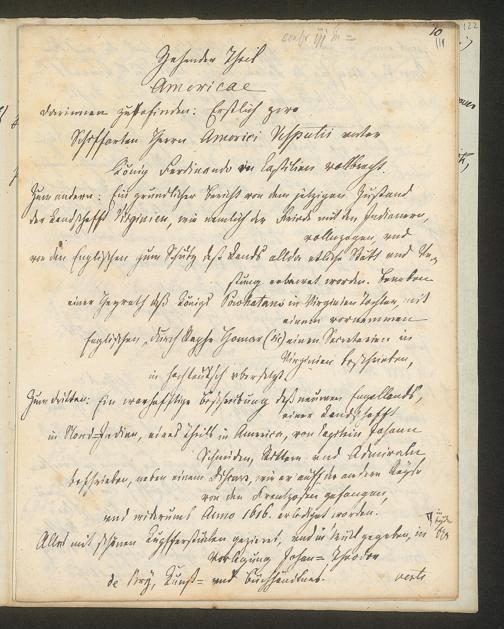 10
122
Zehender Theil
Americae
darinnen zubefinden: Erstlich zwo
Schiffarten Herrn Americi Vesputii unter
König Ferdinando in Castilien vollbracht.
Zum andern: Ein gründlicher Bericht von dem jetzigen Zustand
der Landschafft Virginien, wie nemlich der Friede mit den Indianern,
vollnzogen, und
von den Englischen zum Schutz deß Lands allda etliche Stätt und Ve-
stung erbawet worden. Beneben
einer Heyrath deß Königs Powhatans in Virginien Tochter, mit
einem vornemmen
Englischen, durch Raphe Hamor (sic) einen Secretarien in
Virginien beschrieben,
in hochteutsch ubersetzt.
Zum dritten: Ein warhafftige Beschreibung deß neuwen Engellands,
einer Landschafft
in Nord-Indien, eines theils in America, von Capitein Johann
Schmiden, Rittern und Admiraln
beschrieben, neben einem Discurs, wie er auff der andern Reyse
von den Frantzosen gefangen,
und widerumb Anno 1616. erlediget worden.
Alles mit schönen Kupfferstücken gezieret, und in Truck gegeben, in
Verlegung Johan-Theodor
de Bry, Kunst- und Buchhändlers.
verte